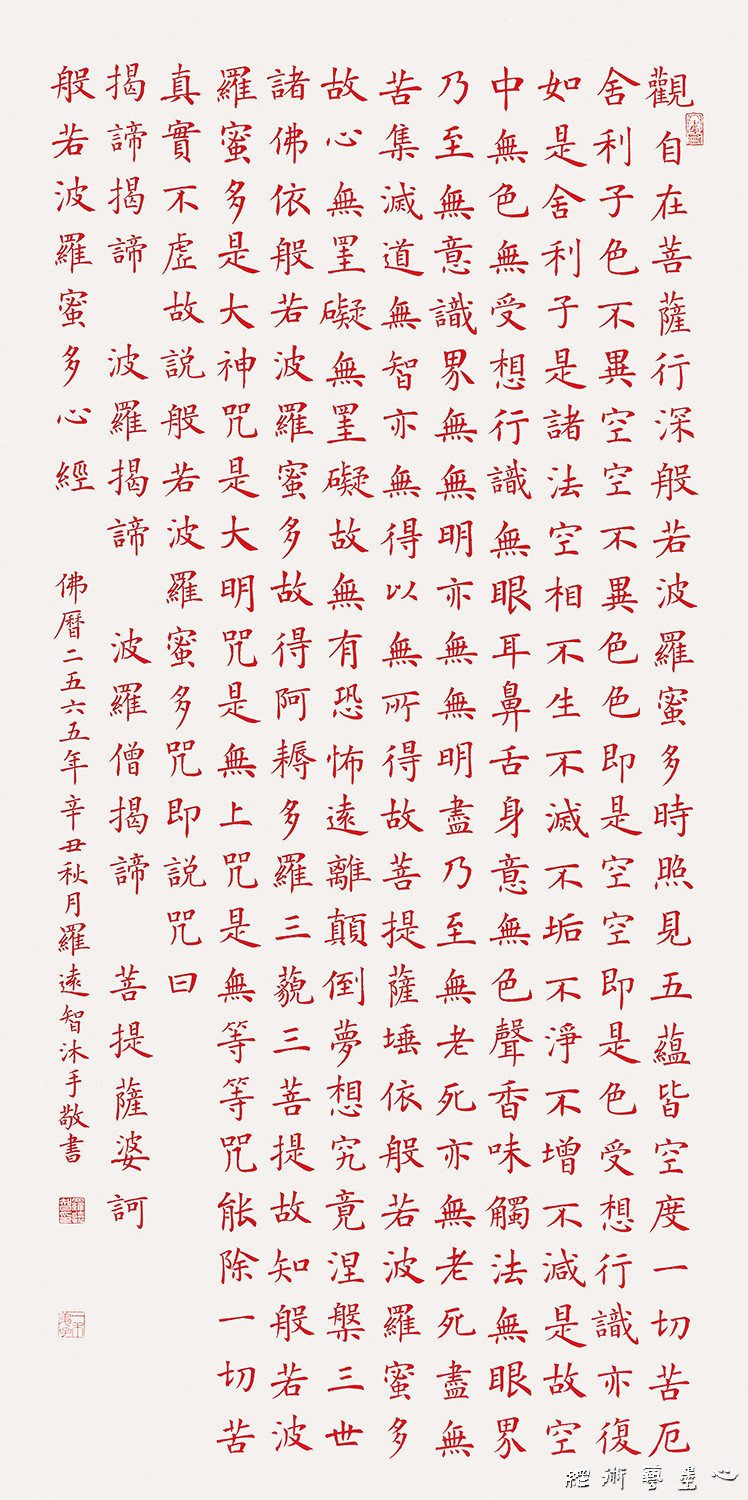 觀自在菩薩行深般若波羅蜜多時照見五蘊皆空度一切苦厄
舍利子色不異空空不異色色即是空空即是色受想行識亦復
如是舍利子是諸法空相不生不滅不垢不淨不增不減是故空
中無色無受想行識無眼耳鼻舌身意無色聲香味觸法無眼界
乃至無意識界無無明亦無無明盡乃至無老死亦無老死盡無
苦集滅道無智亦無得以無所得故菩提薩埵依般若波羅蜜多
故心無罣礙無罣礙故無有恐怖遠離顛倒夢想究竟涅槃三世
諸佛依般若波羅蜜多故得阿耨多羅三藐三菩提故知般若波
羅蜜多是大神咒是大明咒是無上咒是無等等咒能除一切苦
真實不虛故說般若波羅蜜多咒即說咒曰
揭諦揭諦 波羅揭諦 波羅僧揭諦 菩提薩婆訶
般若波羅蜜多心經 佛曆二五六五年辛丑秋月羅遠智沐手敬書
心畫藝術經